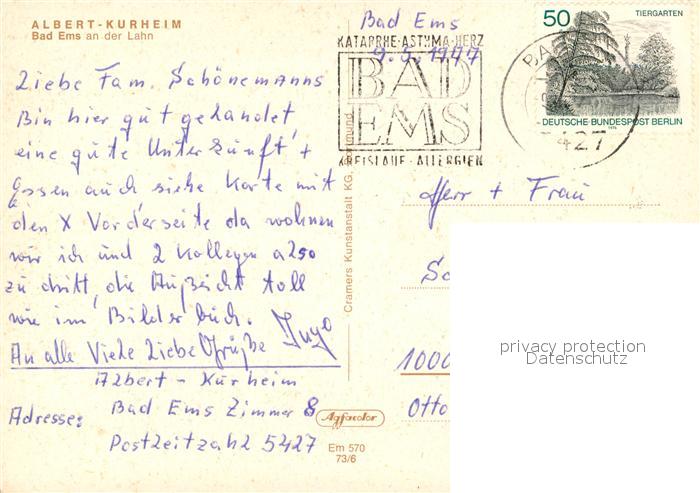 ALBERT-KURHEIM
Bad Ems an der Lahn
Bad Ems
9.5.1977
KATARRHE·ASTHMA·HERZ
BAD
EMS
KREISLAUF·ALLERGIEN
50
TIERGARTEN
DEUTSCHE BUNDESPOST BERLIN
BA
427
Liebe Fam. Schönemanns
Bin hier gut gelandet
eine gute Unterkunft +
Essen auch siehe Karte mit
den X Vorderseite da wohnen
wir ich und 2 Kollegen also
zu dritt, die Außsicht toll
wie im Bilderbuch.
An alle Viele Liebe Grüße Ingo
Albert-Kurheim
Adresse: Bad Ems Zimmer 8
Postleitzahl 5427
Cramers Kunstanstalt KG,
Agfacolor
Em 570
73/6
Herr + Frau
Sc
1000
Otto
privacy protection
Datenschutz